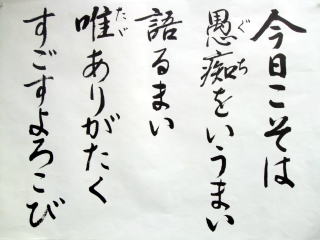 今日こそは
愚痴をいうまい
語るまい
唯ありがたく
すごすよろこび